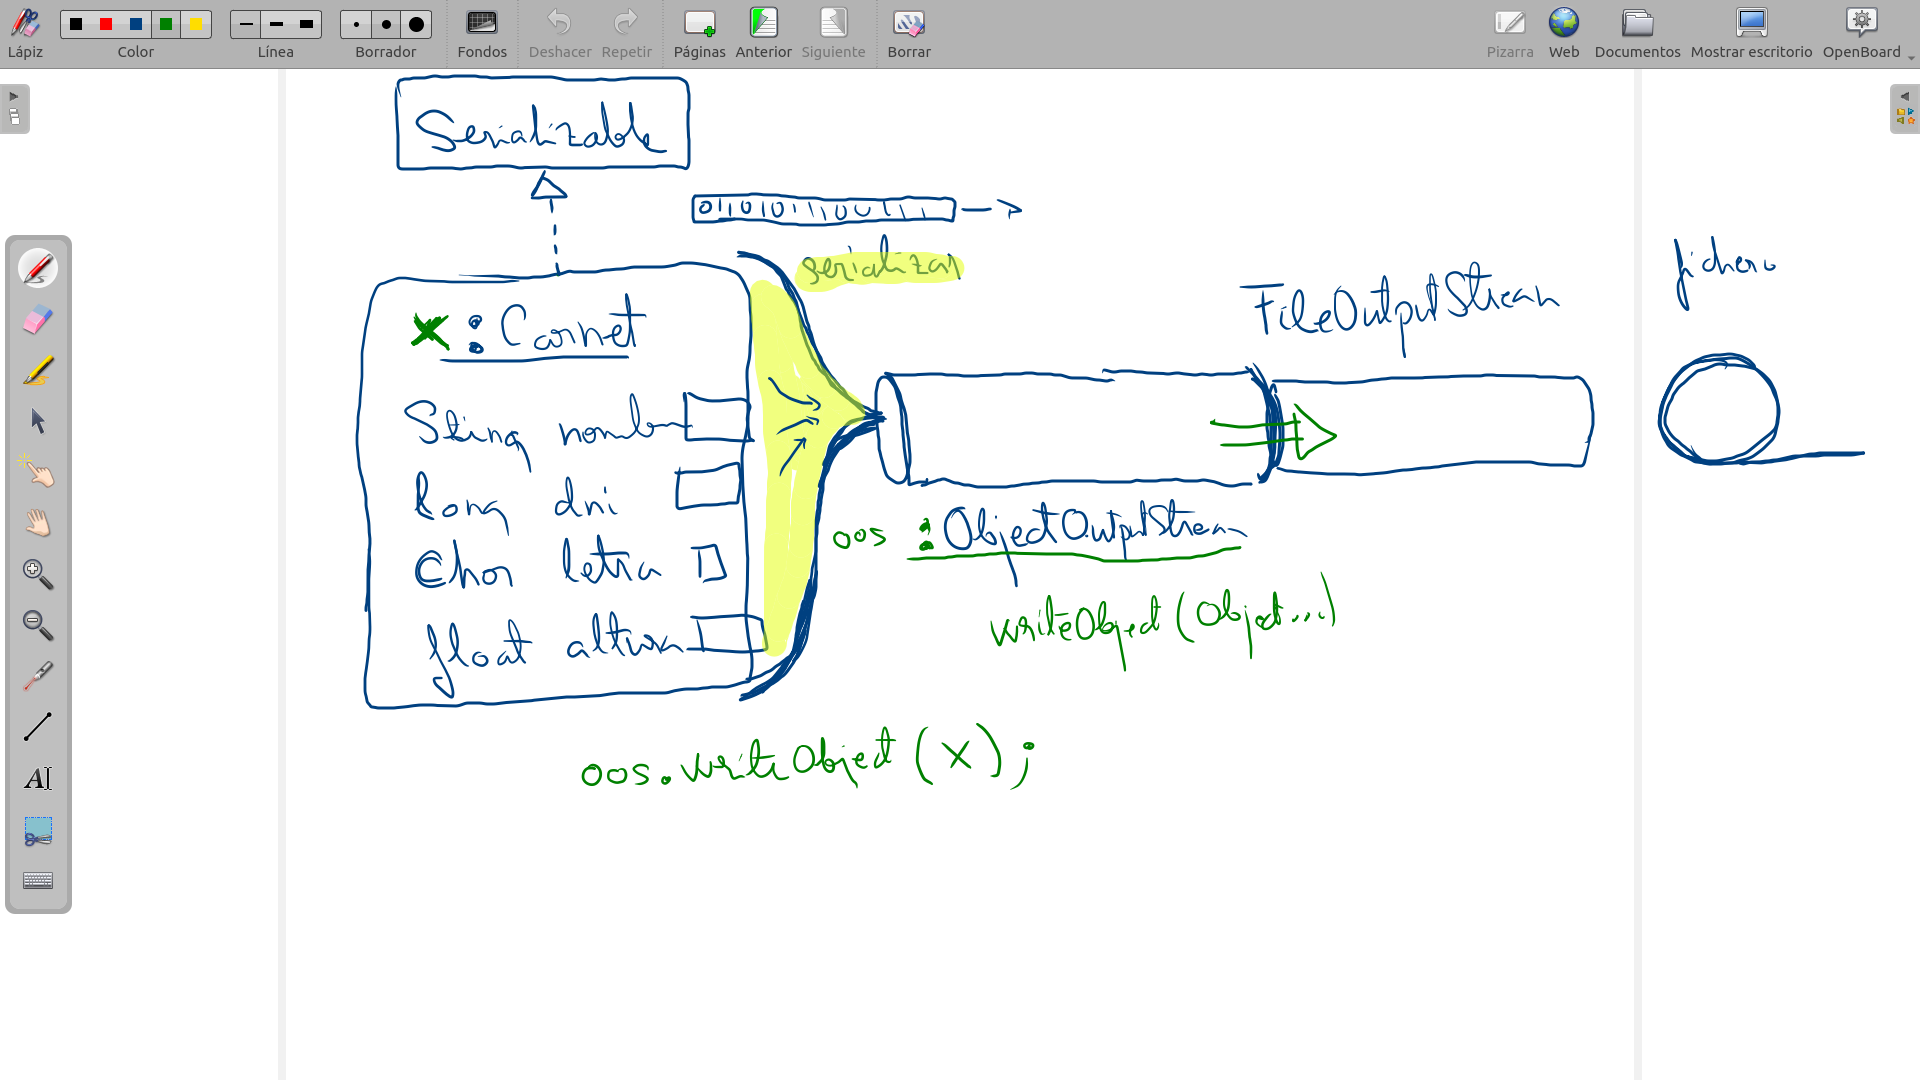 Lápiz
Color
Línea
Borrador
Fondos
Deshacer
Repetir
Páginas
Anterior
Siguiente
Borrar
Pizarra
Web
Documentos
Mostrar escritorio
OpenBoard
Serializable
serializar
fichero
FileOutputStream
x : Carnet
String nombre
long dni
char letra
float altura
oos : ObjectOutputStream
writeObject (Object...)
oos.writeObject (x);
AI